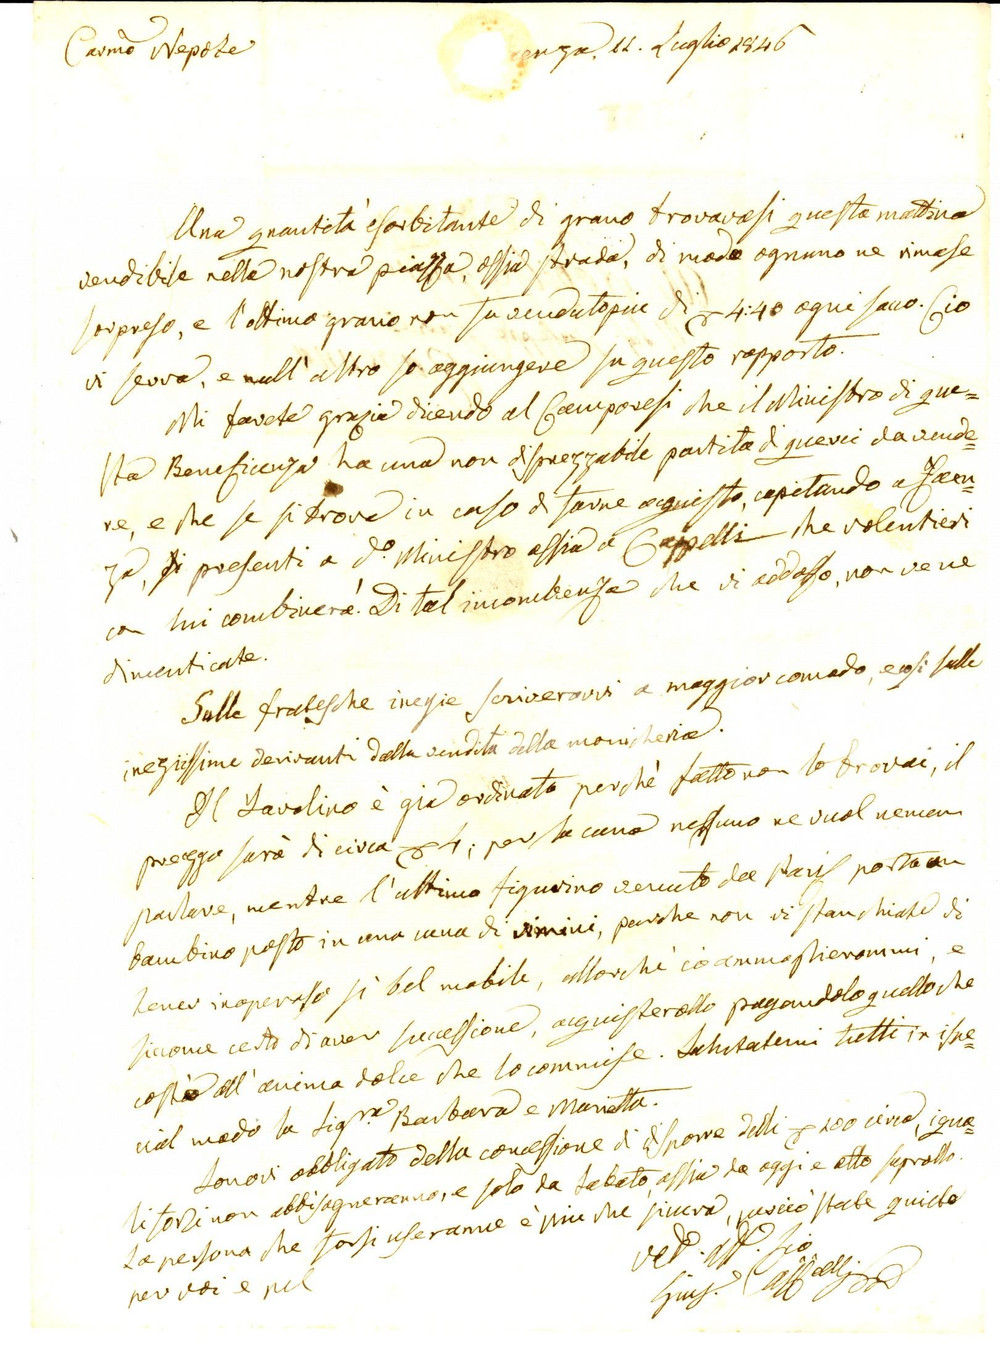 Carmo Nepote
enza, 11. Luglio 1846
Una quantità esorbitante di grano trovavasi questa mattina
vendibile nella nostra piazza, ossia strada, di modo ognuno ne rimase
sorpreso, e l'ottimo grano non fu venduto più di 4:40 ogni sacco. Ciò
vi serva, e null'altro so aggiungere su questo rapporto.
Mi farete grazia dicendo al Camporesi che il Ministro di que=
sta Beneficenza ha una non disprezzabile partita di querci da vende=
re, e che se si trova in caso di farne acquisto, capitando a Faen=
za, si presenti a do. Ministro ossia a Cappelli che volentieri
con lui combinerà. Di tal incombenza che vi addosso, non ve ne
dimenticate.
Sulle fratesche inezie scriverovvi a maggior comodo, e così sulle
inezissime derivanti dalla vendita della monicheria.
Il Tavolino è già ordinato perchè fatto non lo trovai, il
prezzo sarà di circa 4; per la cuna nessuno ne vuol nemen
parlare, mentre l'ultimo figurino venuto da Paris porta un
bambino posto in una cuna di vimini, perche non vi stanchiate di
tener inoperoso sì bel mobile, allorchè io ammoglierommi, e
siccome certo di aver successione, acquisterollo pagandolo quello che
costa all'anima dolce che lo commise. Salutatemi tutti in ispe=
cial modo la Sigra. Barbara e Marietta.
Sonovi obbligato della concessione di disporre delli 200 circa, i qua=
li forsi non abbisogneranno, e solo da Sabato, ossia da oggi e otto saprollo.
La persona che forsi useranne è più che sicura, perciò state quieto
per voi e pel
Vo. Affo. Zio
Giuse.